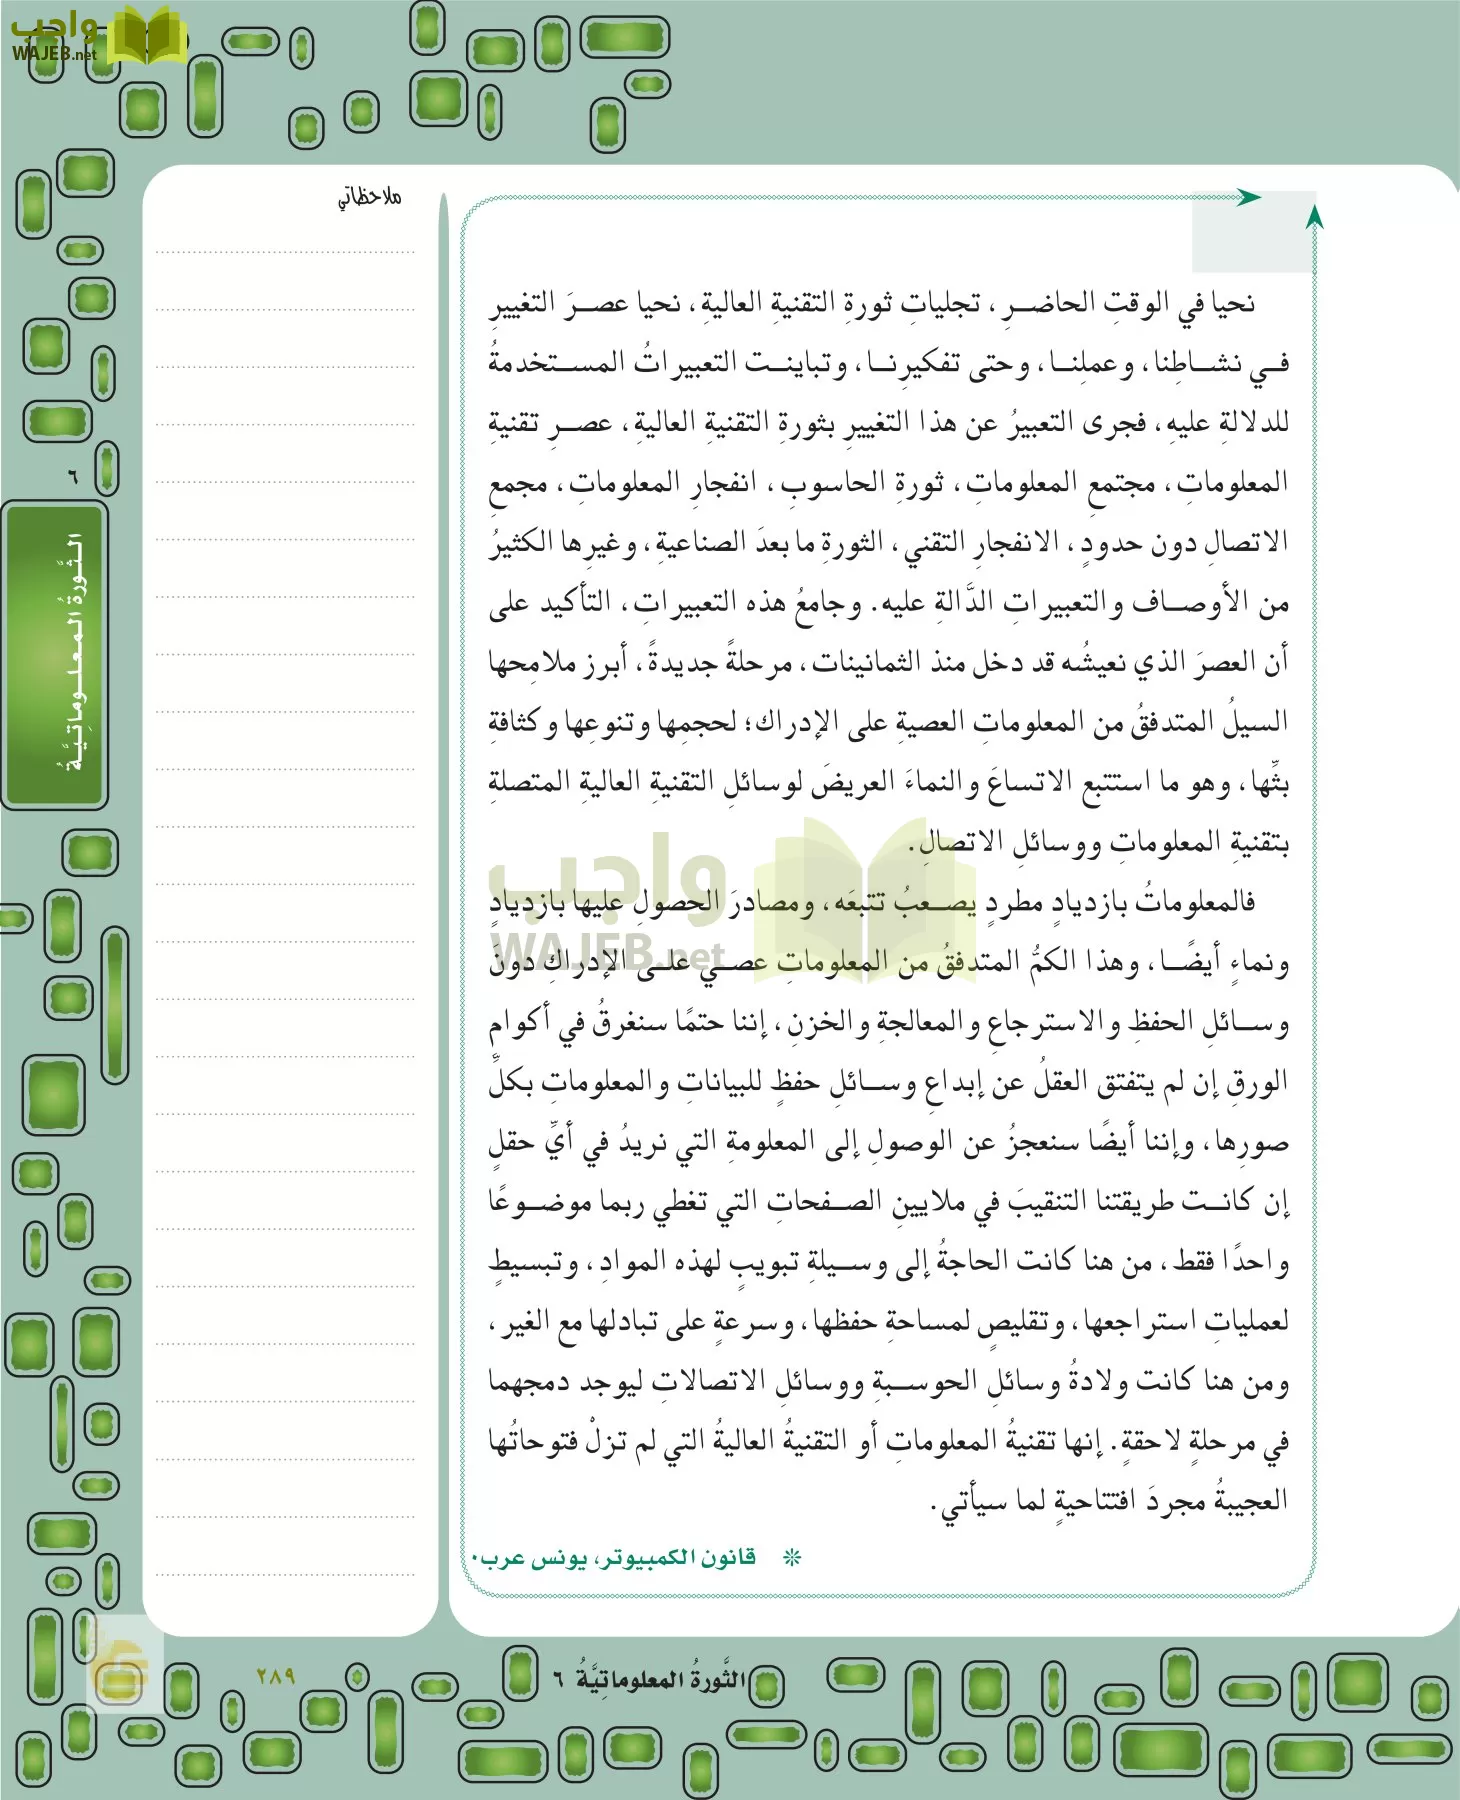 واجب
WAJEB.net
ملاحظاتي
نحيا في الوقتِ الحاضــرِ، تجلياتِ ثورةِ التقنيةِ العاليةِ، نحيا عصــرَ التغييرِ
فــي نشــاطِنا، وعملِنــا، وحتى تفكيرِنــا، وتباينــت التعبيراتُ المســتخدمةُ
للدلالةِ عليهِ، فجرى التعبيرُ عن هذا التغييرِ بثورةِ التقنيةِ العاليةِ، عصــرِ تقنيةِ
المعلوماتِ، مجتمعِ المعلوماتِ، ثورةِ الحاسوبِ، انفجارِ المعلوماتِ، مجمعِ
الاتصالِ دون حدودٍ، الانفجارِ التقني، الثورةِ ما بعدَ الصناعيةِ، وغيرِها الكثيرُ
من الأوصــاف والتعبيراتِ الدَّالةِ عليه. وجامعُ هذه التعبيراتِ، التأكيد على
أن العصرَ الذي نعيشُه قد دخل منذ الثمانينات، مرحلةً جديدةً، أبرز ملامحها
السيلُ المتدفقُ من المعلوماتِ العصيةِ على الإدراك؛ لحجمِها وتنوعِها وكثافةِ
بثِّها، وهو ما استتبع الاتساعَ والنماءَ العريضَ لوسائلِ التقنيةِ العاليةِ المتصلةِ
بتقنيةِ المعلوماتِ ووسائلِ الاتصالِ.
فالمعلوماتُ بازديادٍ مطردٍ يصــعبُ تتبعَه، ومصادرَ الحصولِ عليها بازديادٍ
ونماءٍ أيضًــا، وهذا الكمُّ المتدفقُ من المعلوماتِ عصــي علــى الإدراكِ دونَ
وســائلِ الحفظِ والاسترجاعِ والمعالجةِ والخزنِ، إننا حتمًا سنغرقُ في أكوامِ
الورقِ إن لم يتفتق العقلُ عن إبداعِ وســائلِ حفظٍ للبياناتِ والمعلوماتِ بكلِّ
صورِها، وإننا أيضًا سنعجزُ عن الوصولِ إلى المعلومةِ التي نريدُ في أيِّ حقلٍ
إن كانــت طريقتنا التنقيبَ في ملايين الصــفحاتِ التي تغطي ربما موضــوعًا
واحدًا فقط، من هنا كانت الحاجةُ إلى وســيلةِ تبويبٍ لهذه الموادِ، وتبسيطٍ
لعملياتِ استراجعها، وتقليصٍ لمساحةِ حفظها، وسرعةٍ على تبادلها مع الغير،
ومن هنا كانت ولادةُ وسائلِ الحوســبةِ ووسائلِ الاتصالاتِ ليوجد دمجهما
في مرحلةٍ لاحقةٍ. إنها تقنيةُ المعلوماتِ أو التقنيةُ العاليةُ التي لم تزلْ فتوحاتُها
العجيبةُ مجردَ افتتاحيةٍ لما سيأتي.
❊ قانون الكمبيوتر، يونس عرب.
٦
الثَّورةُ المعلوماتِيَّةُ
واجب
WAJEB.net
الثَّورةُ المعلوماتِيَّةُ ٦
٢٨٩